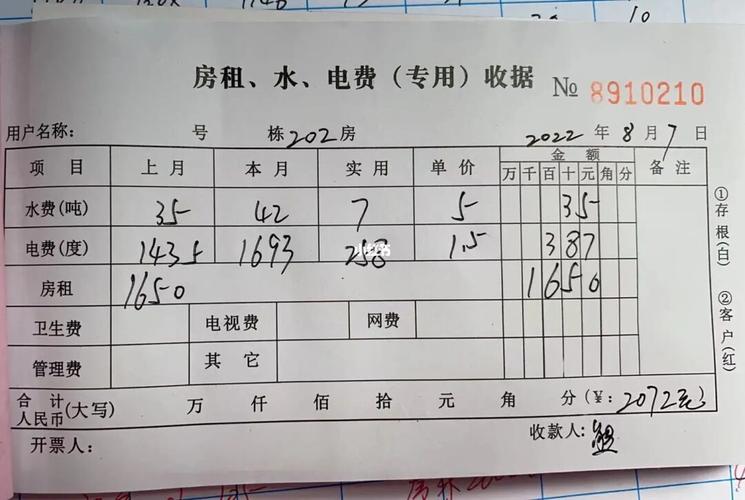 10
房租、水、电费（专用）收据 № 8910210
用户名称： 号 栋202房 2022 年 8 月 7 日
项 目 上 月 本 月 实 用 单 价 金 额 备 注
万 千 百 十 元 角 分
水费(吨) 35 42 7 5 35
电费(度) 1435 1693 258 1.5 387
小红书
房租 1650 1650
卫生费 电视费 网费
管理费 其 它
合 计 人民币 (大写) 万 仟 佰 拾 元 角 分 (￥: 2072元)
开票人： 收款人：
①存根(白) ②客户(红)